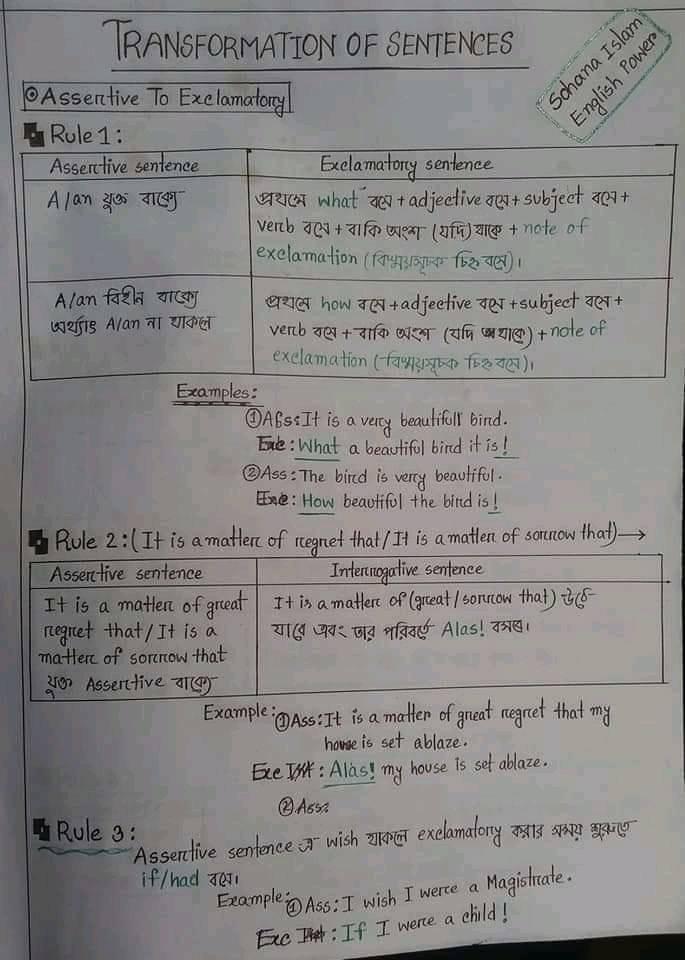 TRANSFORMATION OF SENTENCES
Sohana Islam
English Power
Assertive To Exclamatory
Rule 1:
Assertive sentence
Exclamatory sentence
A/an যুক্ত বাক্যে
প্রথমে what বসে + adjective বসে + subject বসে +
verb বসে + বাকি অংশ (যদি) থাকে + note of
exclamation (বিস্ময়সূচক চিহ্ন বসে)।
A/an বিহীন বাক্যে
অর্থ্যাৎ A/an না থাকলে
প্রথমে how বসে + adjective বসে + subject বসে +
verb বসে + বাকি অংশ (যদি থাকে) + note of
exclamation (বিস্ময়সূচক চিহ্ন বসে)।
Examples:
① Ass: It is a very beautifull bird.
Exc: What a beautiful bird it is!
② Ass: The bird is very beautiful.
Exc: How beautiful the bird is!
Rule 2: (It is a matter of regret that/It is a matter of sorrow that) →
Assertive sentence
Interrogative sentence
It is a matter of great
regret that/It is a
matter of sorrow that
যুক্ত Assertive বাক্যে
It is a matter of (great/sorrow that) উঠে
যাবে এবং তার পরিবর্তে Alas! বসবে।
Example: ① Ass: It is a matter of great regret that my
house is set ablaze.
Exc : Alas! my house is set ablaze.
② Ass:
Rule 3:
Assertive sentence এ wish থাকলে exclamatory করার সময় শুরুতে
if/had বসে।
Example: ① Ass: I wish I were a Magistrate.
Exc : If I were a child!